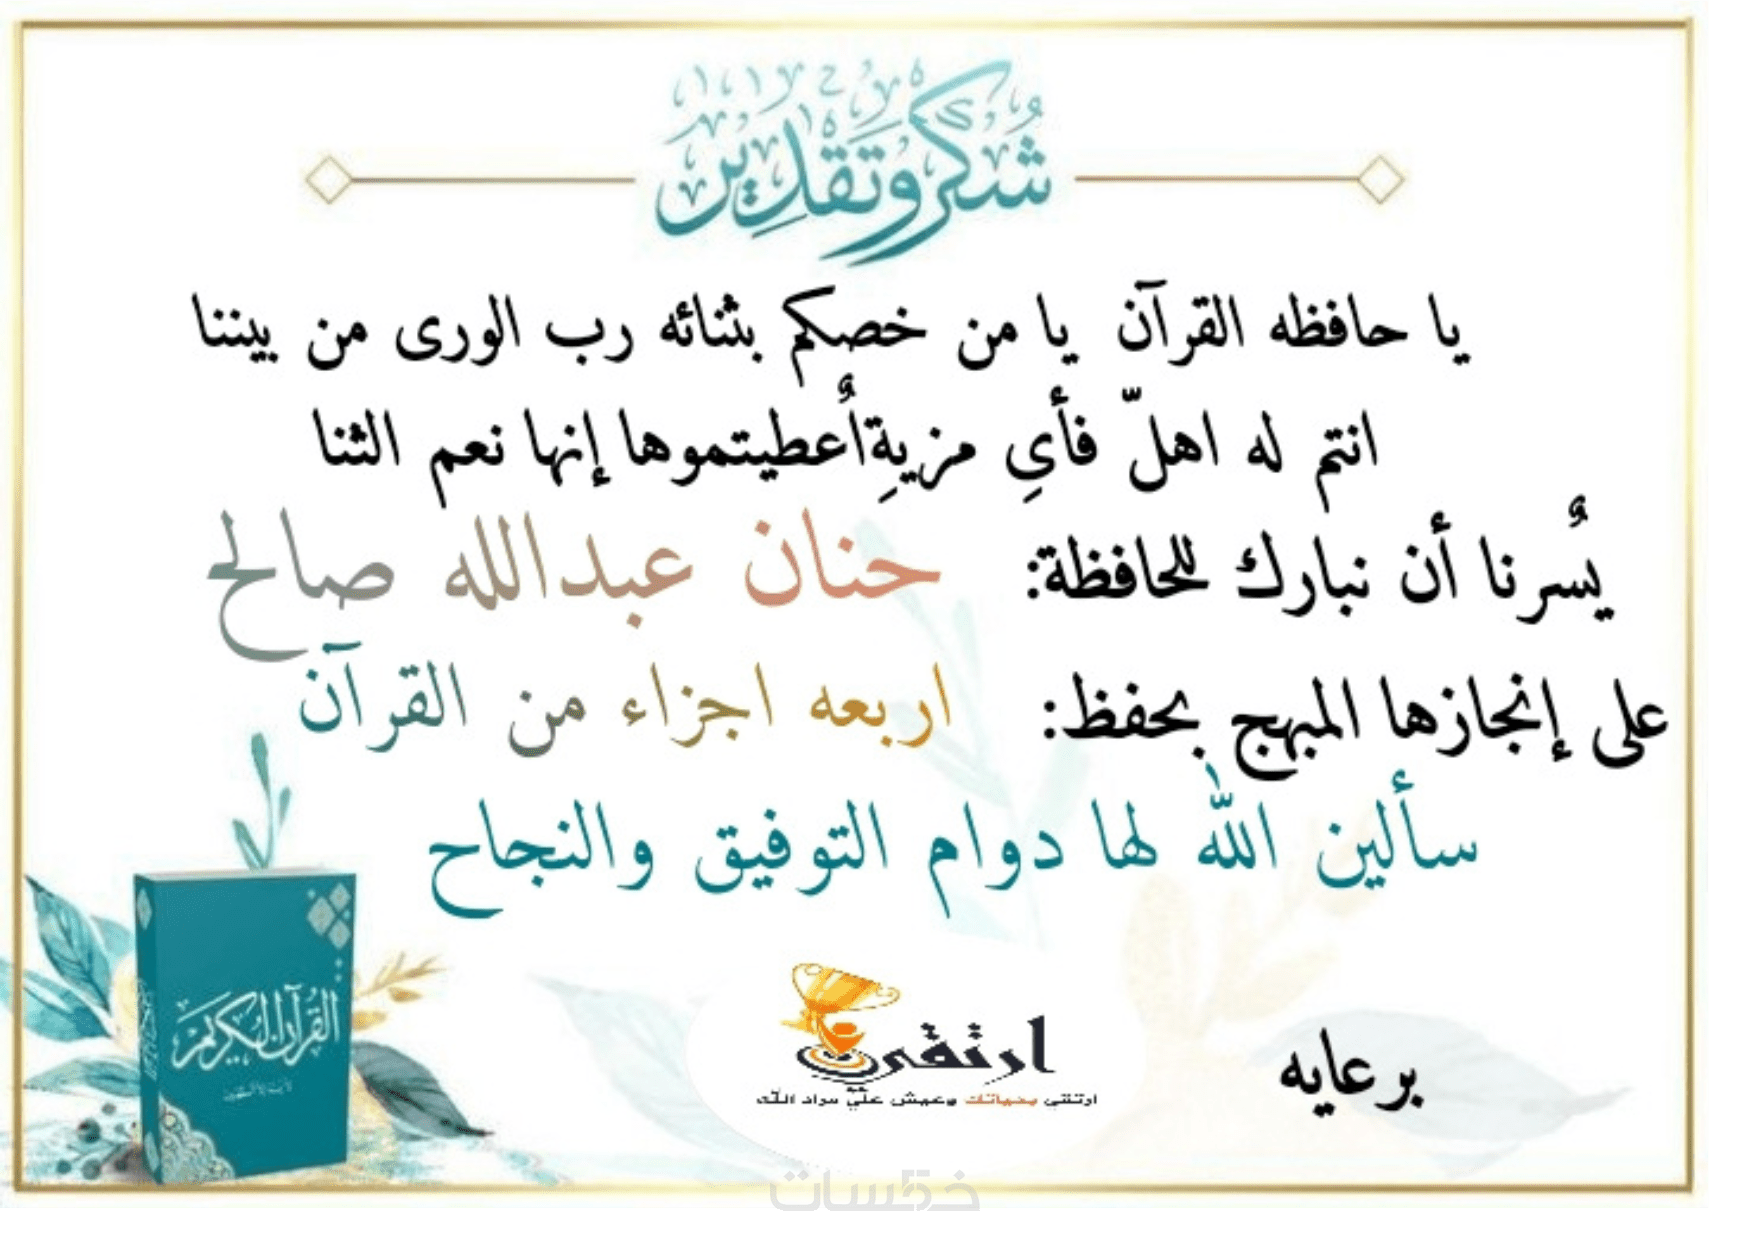 شكر وتقدير
يا حافظه القرآن يا من خصكم بثنائه رب الورى من بيننا
انتم له اهلّ فأيِ مزيةِ اُعطيتموها إنها نعم الثنا
يٌسرنا أن نبارك للحافظة: حنان عبدالله صالح
على إنجازها المبهج بحفظ: اربعه اجزاء من القرآن
سألين الله لها دوام التوفيق والنجاح
القرآن الكريم
ارتقي
ارتقي بحياتك وعيش علي مراد الله
برعايه
خمسات